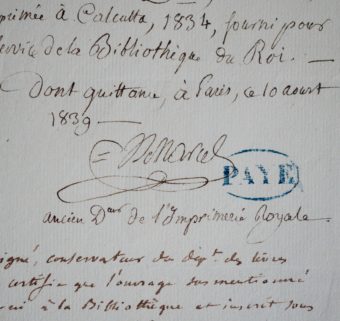 primée à Calcutta, 1834, fourni pour
service de la Bibliothèque du Roi. —
Dont quittance, à Paris, ce 10 aourt
1839 —
PAYÉ
ancien Dteur de l'Imprimerie Royale.
signé, conservateur du dépt. des livres
certifie que l'ouvrage susmentionné
à la Bibliothèque et inscrit sous